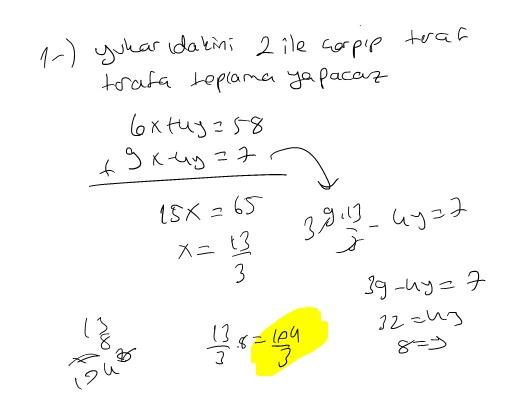 1-) yukarıdakini 2 ile çarpıp taraf
tarafa toplama yapacaz
6x+4y=58
+ 9x-4y=7
15x=65
x=13/3
3 9.13/3 - 4y=7
39-4y=7
32=4y
8=y
13
8
104
13/3 .8=104/3